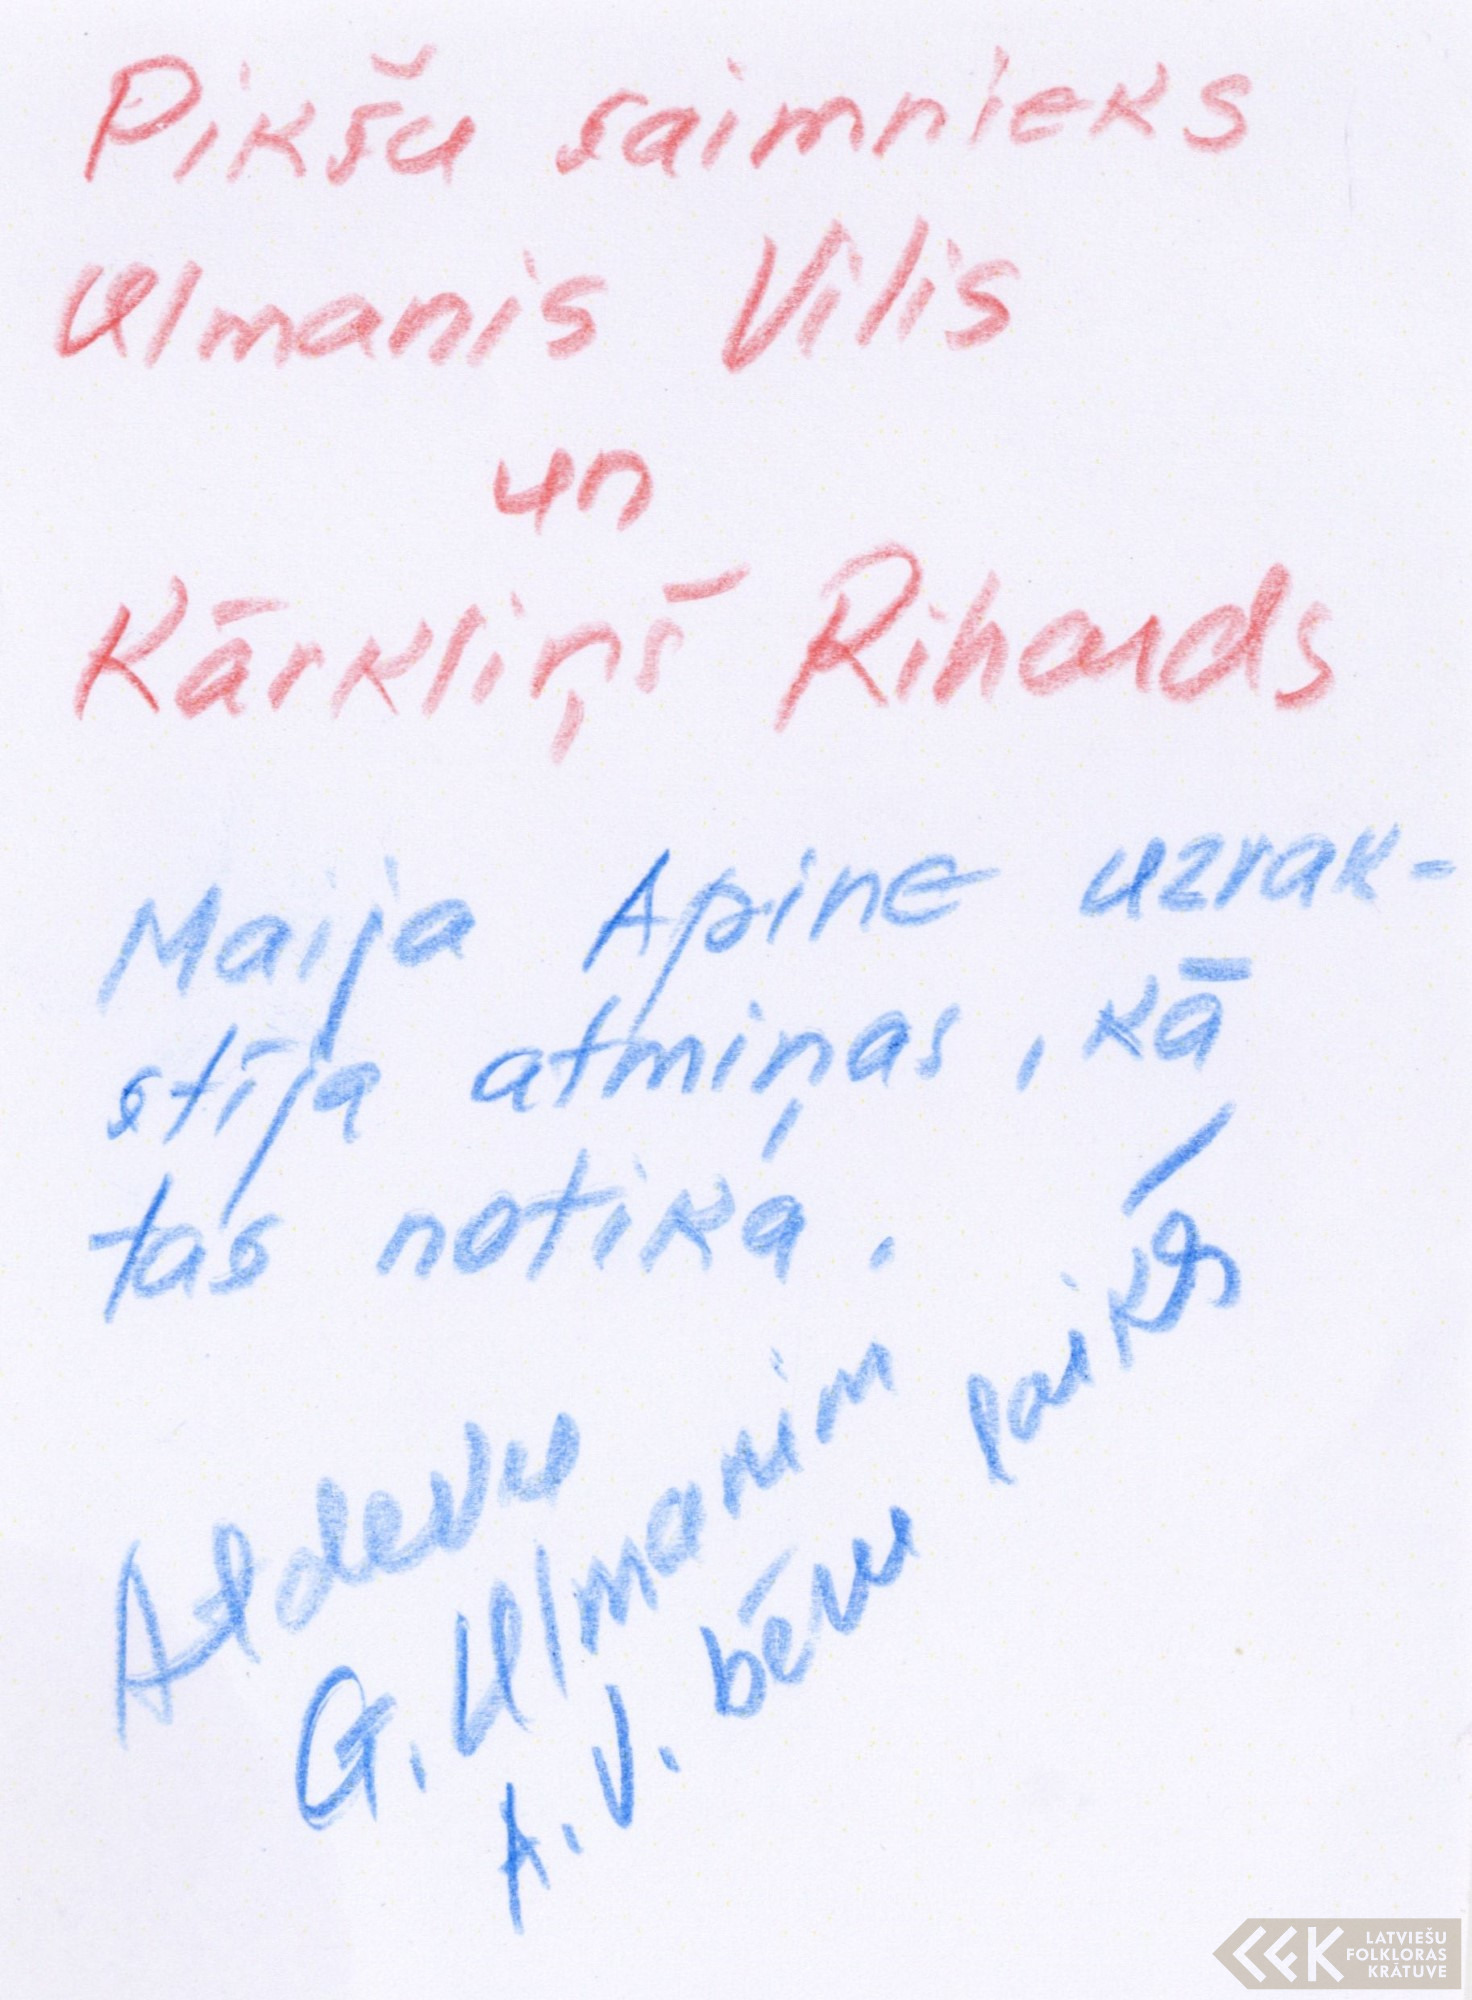 Pikšu saimnieks
Ulmanis Vilis
un
Kārkliņš Rihards
Maija Apine uzrak-
stīja atmiņas, kā
tas notika.
Atdevu
G. Ulmanim
A.V. bēru laikā
LATVIEŠU
FOLKLORAS
KRĀTUVE